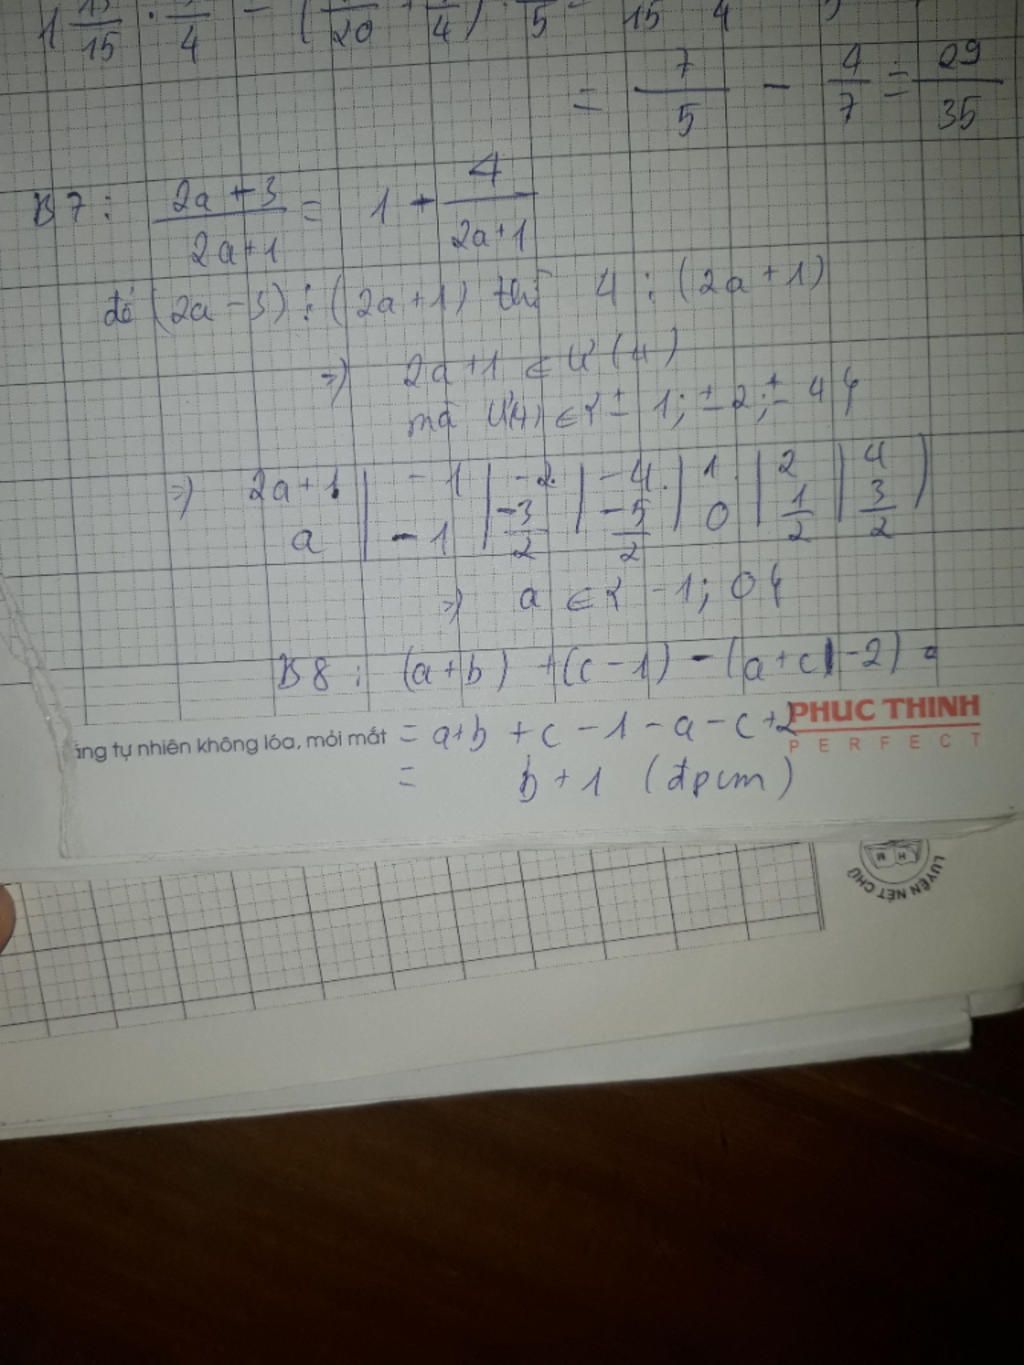 1 15/15 : 7/4 - ( /20 + /4) : /5 = 15 4
= 7/5 - 4/7 = 29/35
B7: (2a+3)/(2a+1) = 1 + 4/(2a+1)
để (2a-3) ⋮ (2a+1) thì 4 ⋮ (2a+1)
=> 2a+1 ∈ Ư(4)
mà Ư(4) ∈ {±1; ±2; ±4}
=> 2a+1 | -1 | -2 | -4 | 1 | 2 | 4
a | -1 | -3/2 | -5/2 | 0 | 1/2 | 3/2
=> a ∈ {-1; 0}
B8: (a+b) + (c-1) - (a+c-2) =
= a+b+c-1-a-c+2
= b+1 (đpcm)
tự nhiên không lóa, mỏi mắt
PHUC THINH
PERFECT
LUYỆN NÉT CHỮ